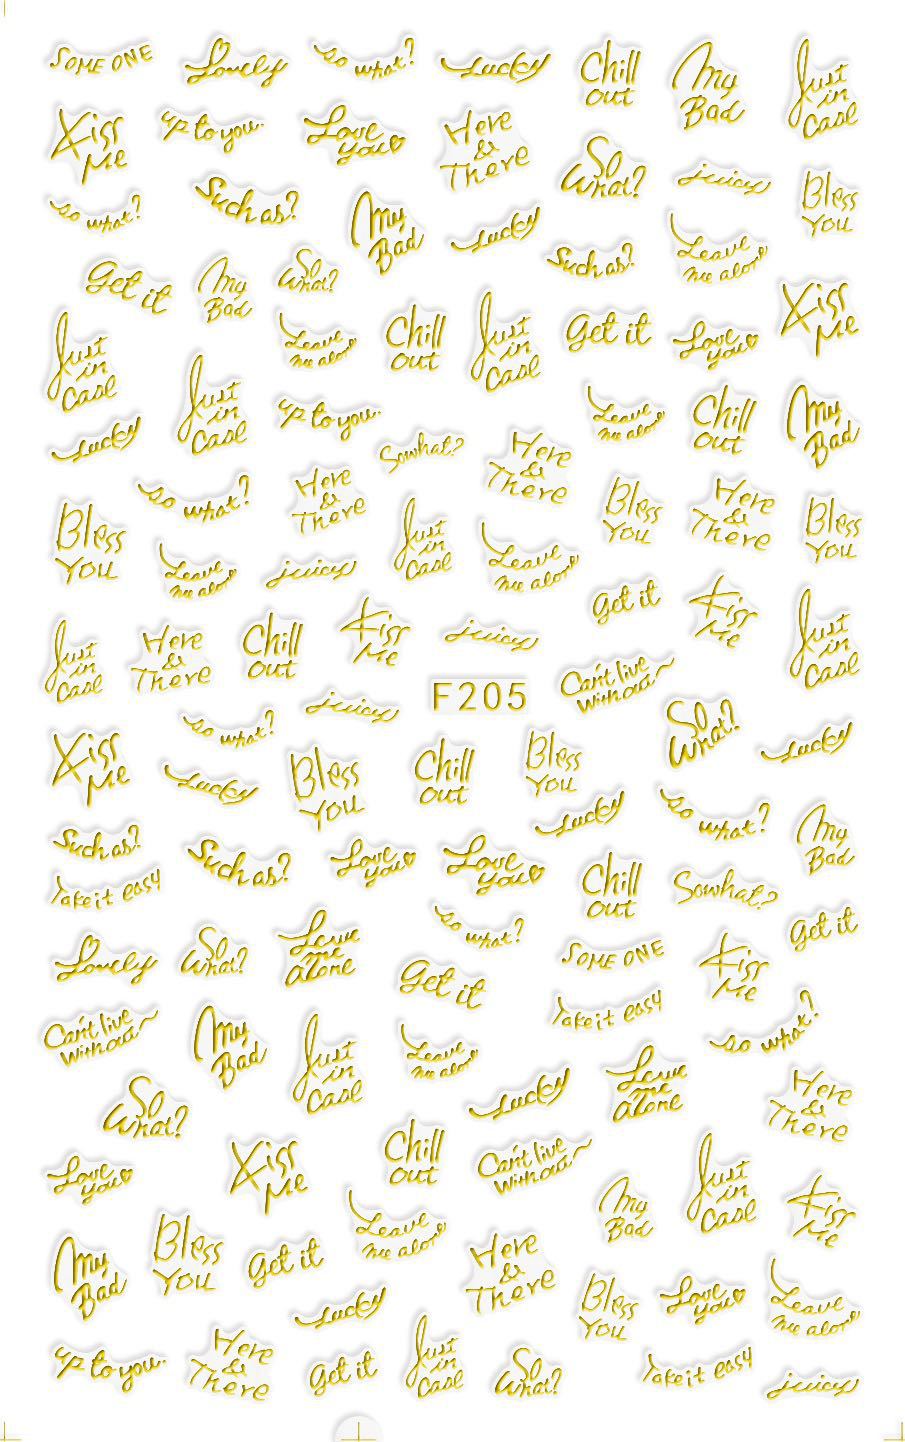 SOME ONE
Lovely
so what?
Lucky
Chill
out
My
Bad
Just
in
Case
Kiss
Me
up to you.
Love
you
Here
&
There
So
What?
juicy
Bless
You
so what?
Such as?
My
Bad
Lucky
Such as?
Leave
me alone
Get it
My
Bad
So
What?
Kiss
Me
Just
in
Case
Leave
me alone
Chill
out
Just
in
Case
Get it
Love
you
Just
in
Case
up to you.
Leave
me alone
Chill
out
My
Bad
Lucky
Sowhat?
Here
&
There
so what?
Here
&
There
Bless
You
Here
&
There
Bless
You
Bless
You
Leave
me alone
juicy
Just
in
Case
Leave
me alone
Get it
Kiss
Me
Just
in
Case
Just
in
Case
Here
&
There
Chill
out
Kiss
Me
juicy
Can't live
without
F205
juicy
so what?
So
What?
Lucky
Kiss
Me
Lucky
Bless
You
Chill
out
Bless
You
Lucky
so what?
My
Bad
Such as?
Such as?
Love
you
Love
you
Chill
out
Sowhat?
Take it easy
so what?
Get it
Lovely
So
What?
Leave
me
alone
Get it
SOME ONE
Kiss
Me
Can't live
without
My
Bad
Just
in
Case
Leave
me alone
Take it easy
so what?
So
What?
Lucky
Leave
me
alone
Here
&
There
Love
you
Kiss
Me
Chill
out
Can't live
without
My
Bad
Just
in
Case
Kiss
Me
My
Bad
Bless
You
Get it
Leave
me alone
Here
&
There
Bless
You
Love
you
Leave
me alone
Lucky
up to you.
Here
&
There
Get it
Just
in
Case
So
What?
Take it easy
juicy